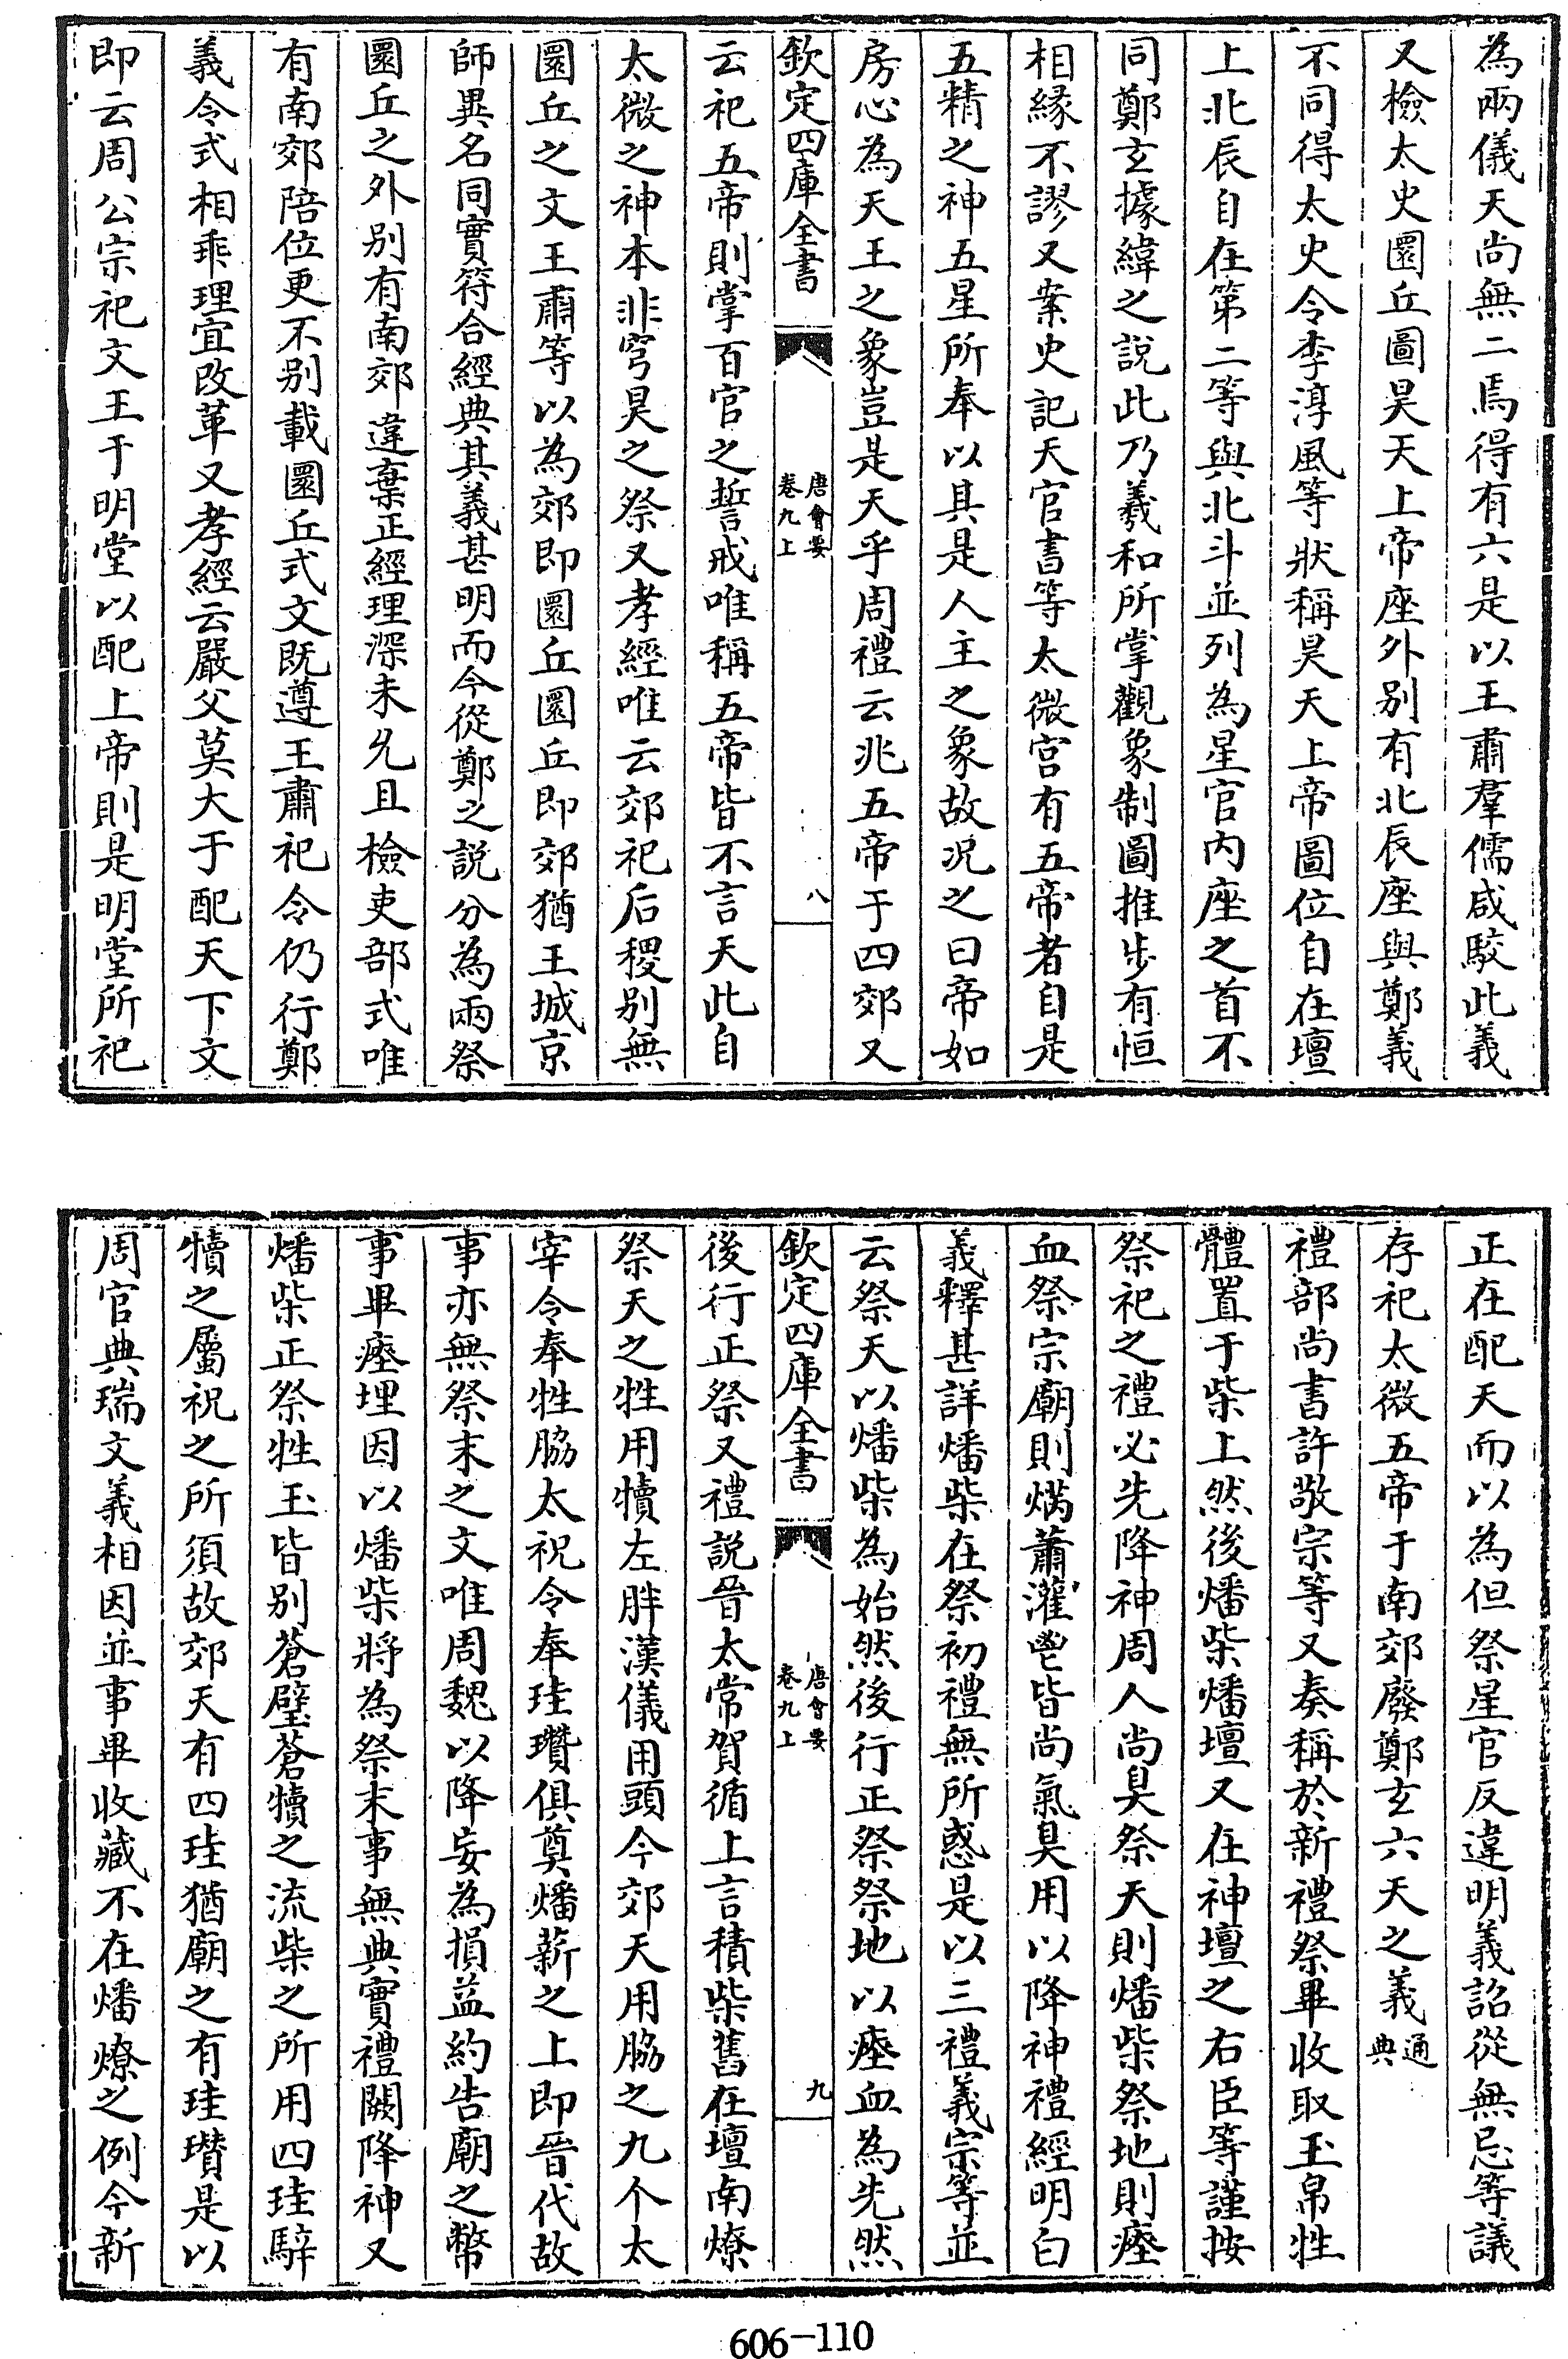 為兩儀天尚無二焉得有六是以王肅羣儒咸駮此義
又檢太史圜丘圖昊天上帝座外别有北辰座與鄭義
不同得太史令李淳風等狀稱昊天上帝圖位自在壇
上北辰自在第二等與北斗並列為星官内座之首不
同鄭玄據緯之說此乃羲和所掌觀象制圖推步有恒
相緣不謬又案史記天官書等太微宫有五帝者自是
五精之神五星所奉以其是人主之象故况之曰帝如
房心為天王之象豈是天乎周禮云兆五帝于四郊又
欽定四庫全書
唐會要
卷九上
八
云祀五帝則掌百官之誓戒唯稱五帝皆不言天此自
太微之神本非穹昊之祭又孝經唯云郊祀后稷别無
圜丘之文王肅等以為郊即圜丘圜丘即郊猶王城京
師異名同實符合經典其義甚明而今從鄭之說分為兩祭
圜丘之外别有南郊違棄正經理深未允且檢吏部式唯
有南郊陪位更不别載圜丘式文既遵王肅祀令仍行鄭
義令式相乖理宜改革又孝經云嚴父莫大于配天下文
即云周公宗祀文王于明堂以配上帝則是明堂所祀
正在配天而以為但祭星官反違明義詔從無忌等議
存祀太微五帝于南郊廢鄭玄六天之義通典
禮部尚書許敬宗等又奏稱於新禮祭畢收取玉帛牲
體置于柴上然後燔柴燔壇又在神壇之右臣等謹按
祭祀之禮必先降神周人尚臭祭天則燔柴祭地則瘞
血祭宗廟則焫蕭灌鬯皆尚氣臭用以降神禮經明白
義釋甚詳燔柴在祭初禮無所惑是以三禮義宗等並
云祭天以燔柴為始然後行正祭祭地以瘞血為先然
欽定四庫全書
唐會要
卷九上
九
後行正祭又禮説晉太常賀循上言積柴舊在壇南燎
祭天之牲用犢左胖漢儀用頭今郊天用脇之九个太
宰令奉牲脇太祝令奉珪瓚俱奠燔薪之上即晉代故
事亦無祭末之文唯周魏以降妄為損益約告廟之幣
事畢瘞埋因以燔柴將為祭末事無典實禮闕降神又
燔柴正祭牲玉皆别蒼璧蒼犢之流柴之所用四珪騂
犢之屬祝之所須故郊天有四珪猶廟之有珪瓚是以
周官典瑞文義相因並事畢收藏不在燔燎之例今新
606-110